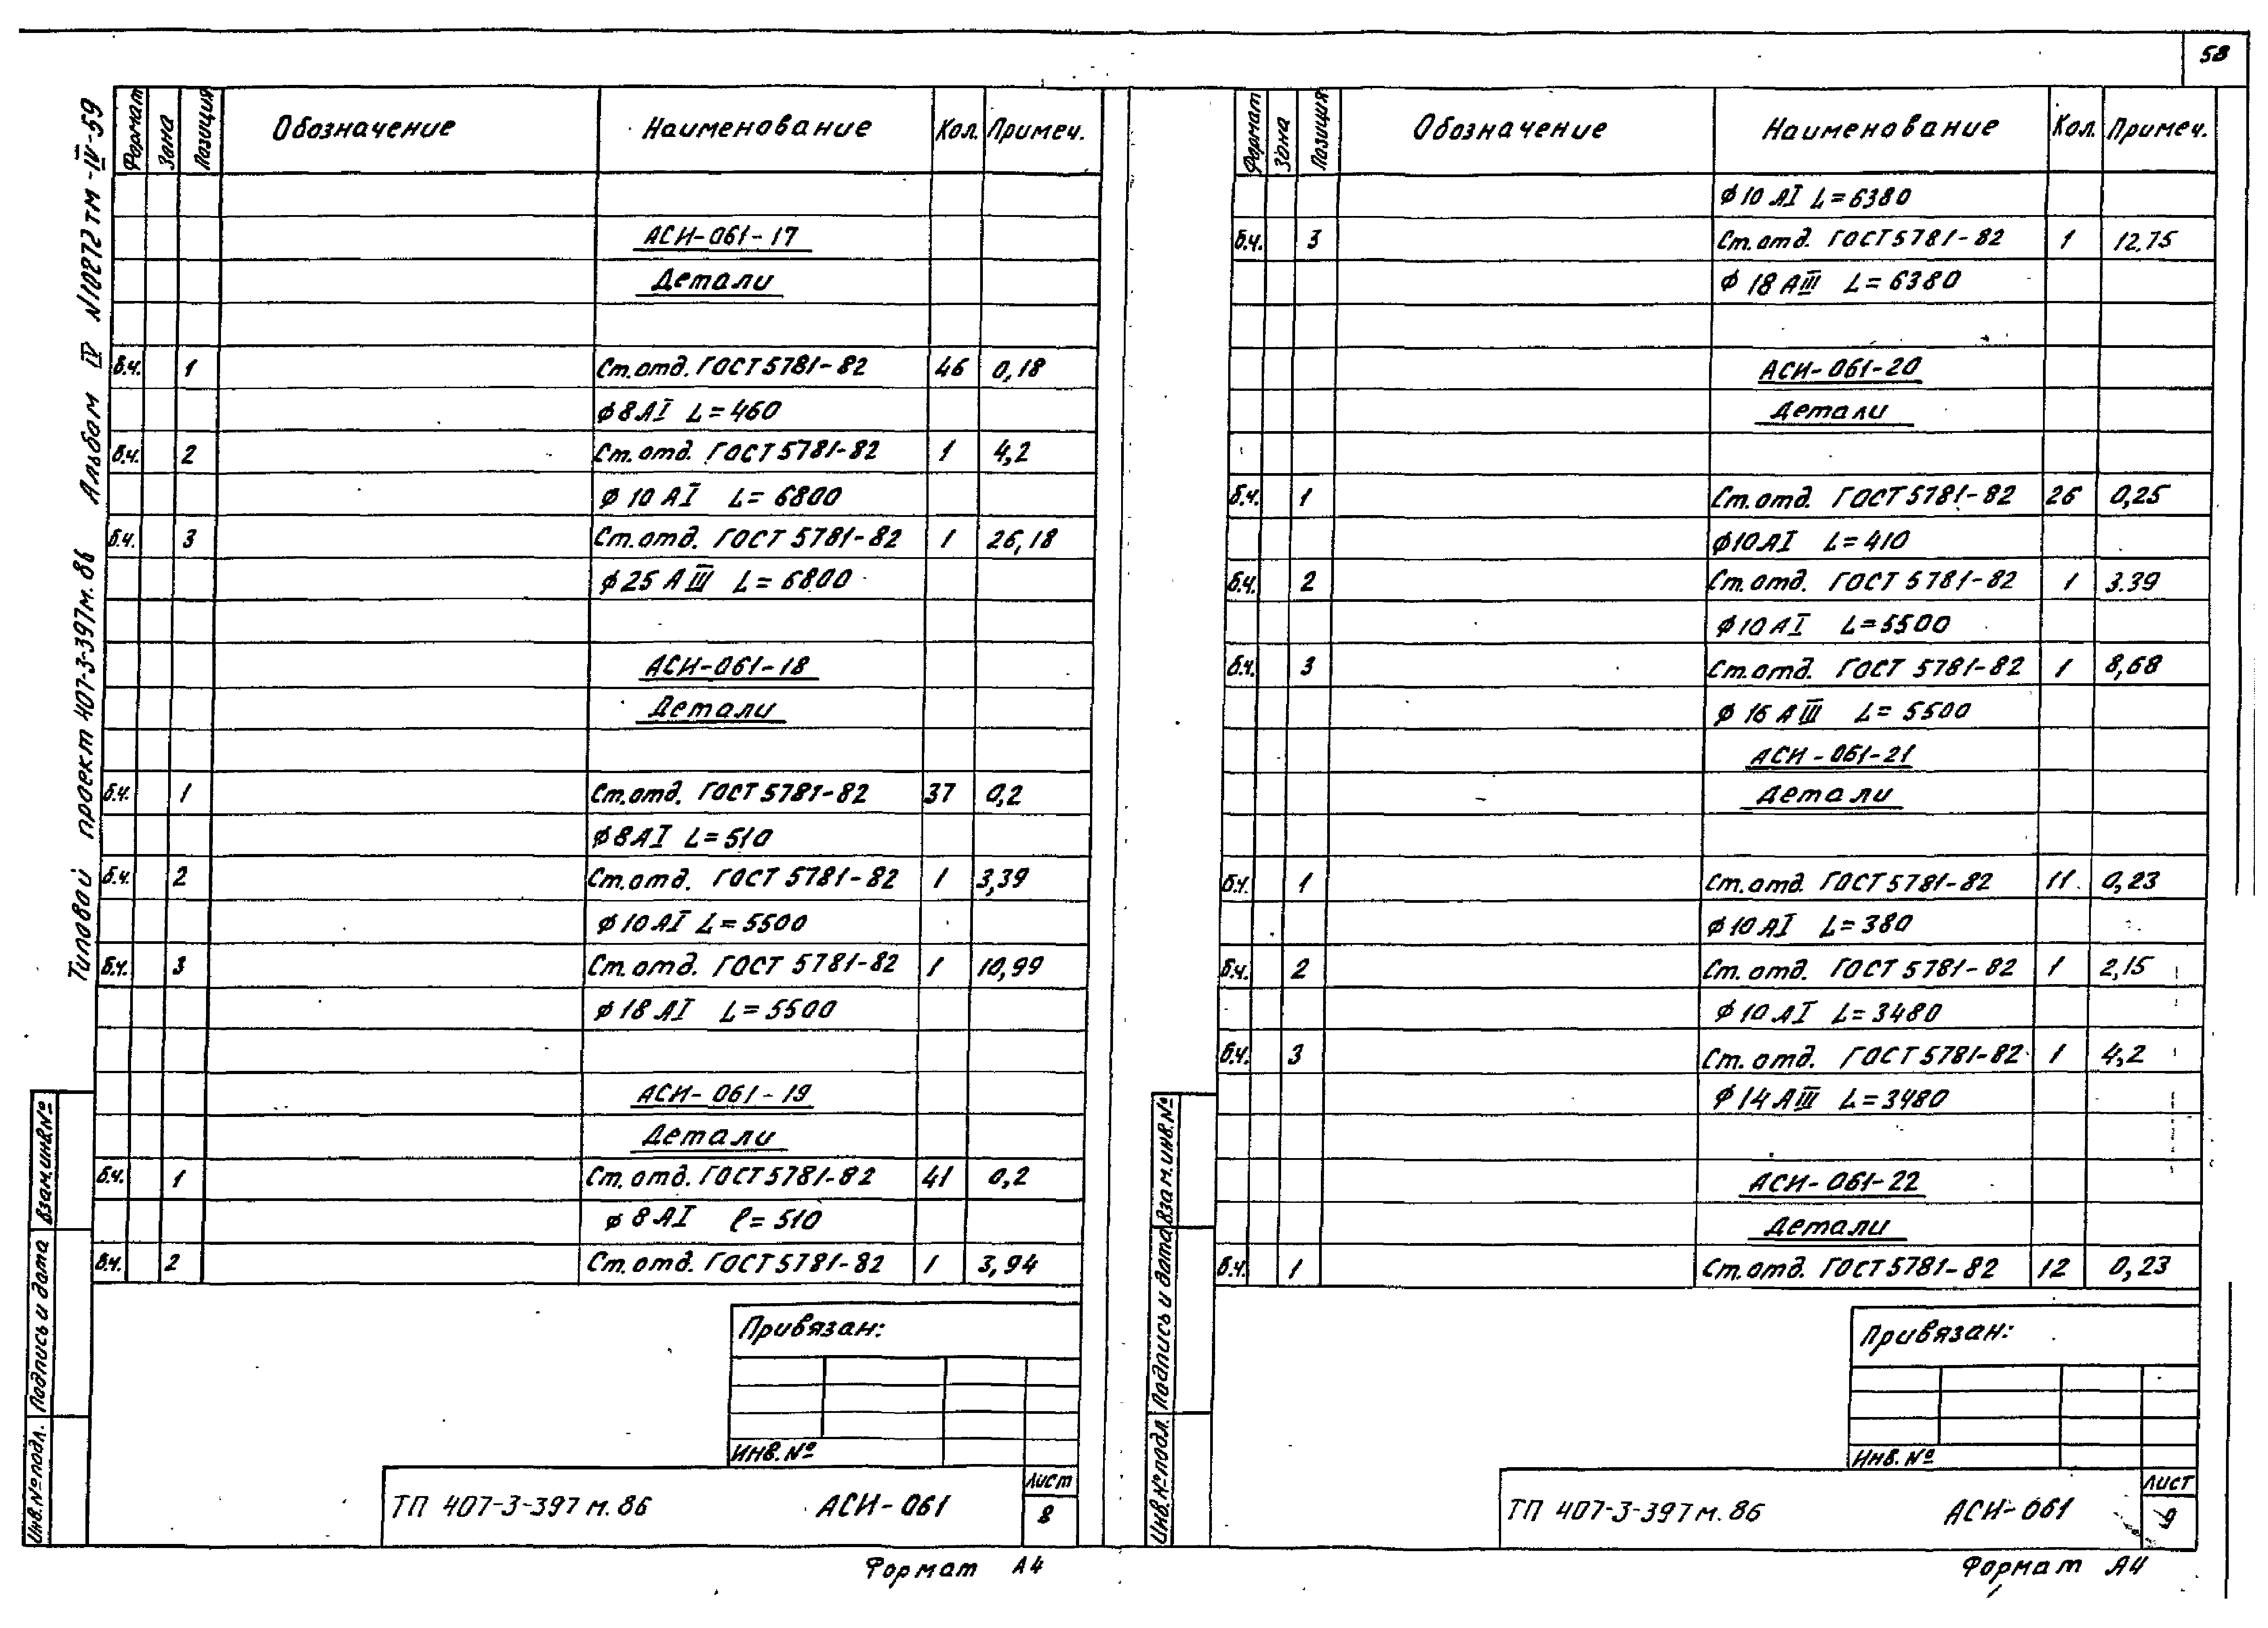 58
Типовой проект 407-3-397м.86 Альбом IV N10272тм-IV-59
Формат Зона Позиция Обозначение Наименование Кол. Примеч.
АСИ-061-17
Детали
б.ч. 1 Ст.отд. ГОСТ 5781-82 46 0,18
φ8АI L=460
б.ч. 2 Ст.отд. ГОСТ 5781-82 1 4,2
φ10АI L=6800
б.ч. 3 Ст.отд. ГОСТ 5781-82 1 26,18
φ25АIII L=6800
АСИ-061-18
Детали
б.ч. 1 Ст.отд. ГОСТ 5781-82 37 0,2
φ8АI L=510
б.ч. 2 Ст.отд. ГОСТ 5781-82 1 3,39
φ10АI L=5500
б.ч. 3 Ст.отд. ГОСТ 5781-82 1 10,99
φ18АI L=5500
АСИ-061-19
Детали
б.ч. 1 Ст.отд. ГОСТ 5781-82 41 0,2
φ8АI ℓ=510
б.ч. 2 Ст.отд. ГОСТ 5781-82 1 3,94
Привязан:
Инв.№
ТП 407-3-397м.86 АСИ-061
Лист
8
Формат А4
Инв.№подл. Подпись и дата Взам.инв.№
Формат Зона Позиция Обозначение Наименование Кол. Примеч.
φ10АI L=6380
б.ч. 3 Ст.отд. ГОСТ 5781-82 1 12.75
φ18АIII L=6380
АСИ-061-20
Детали
б.ч. 1 Ст.отд. ГОСТ 5781-82 26 0,25
φ10АI L=410
б.ч. 2 Ст.отд. ГОСТ 5781-82 1 3.39
φ10АI L=5500
б.ч. 3 Ст.отд. ГОСТ 5781-82 1 8,68
φ16АIII L=5500
АСИ-061-21
Детали
б.ч. 1 Ст.отд. ГОСТ 5781-82 11 0,23
φ10АI L=380
б.ч. 2 Ст.отд. ГОСТ 5781-82 1 2,15
φ10АI L=3480
б.ч. 3 Ст.отд. ГОСТ 5781-82 1 4,2
φ14АIII L=3480
АСИ-061-22
Детали
б.ч. 1 Ст.отд. ГОСТ 5781-82 12 0,23
Привязан:
Инв.№
ТП 407-3-397м.86 АСИ-061
Лист
9
Формат А4
Инв.№подл. Подпись и дата Взам.инв.№